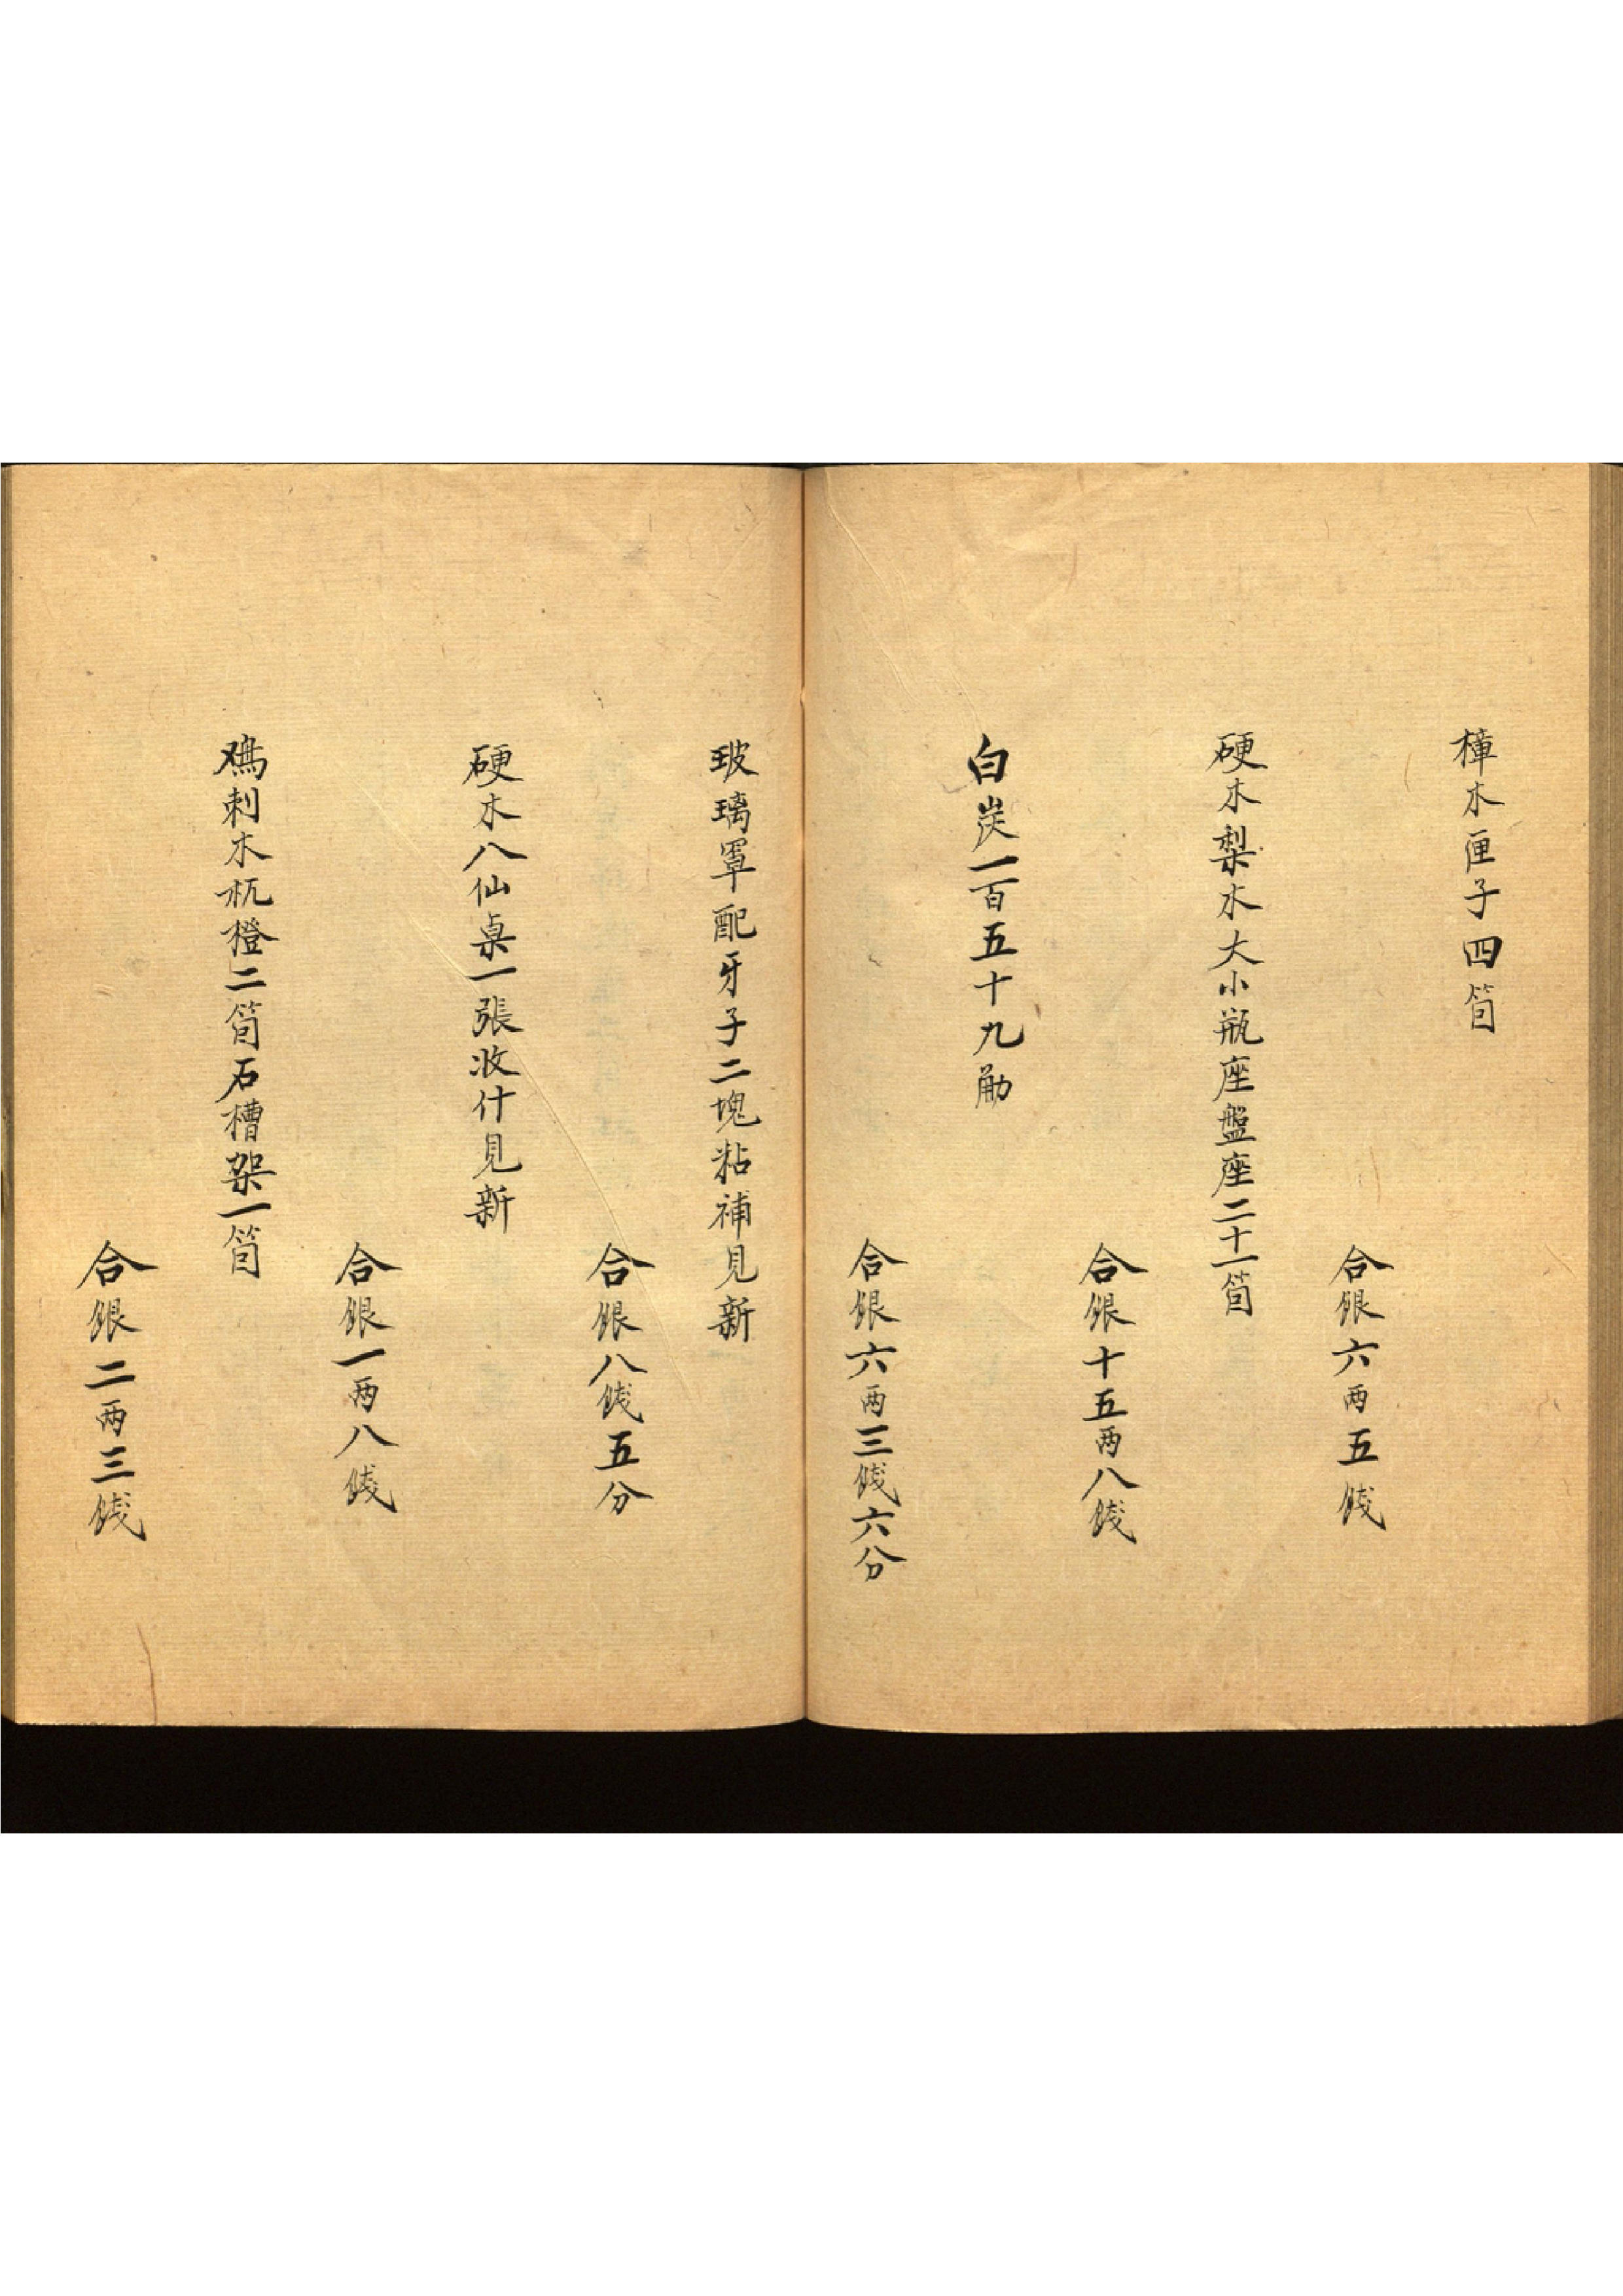 樟木匣子四箇
合銀六两五錢
硬木梨木大小瓶座盤座二十一箇
合銀十五两八錢
白炭一百五十九觔
合銀六两三錢六分
玻璃罩配牙子二塊粘補見新
合銀八錢五分
硬木八仙桌一張收什見新
合銀一两八錢
鸡刺木杌橙二箇石槽架一箇
合銀二两三錢